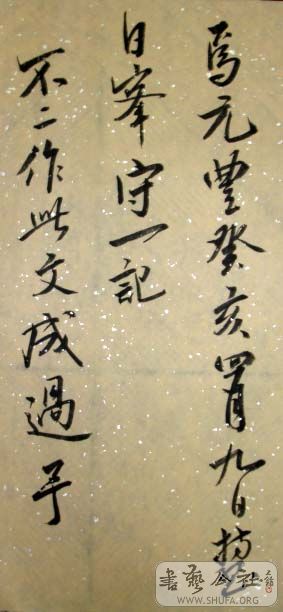 焉元豐癸亥四月九日
日峯守一記
不二作此文成過予
書藝公社
WWW.SHUFA.ORG